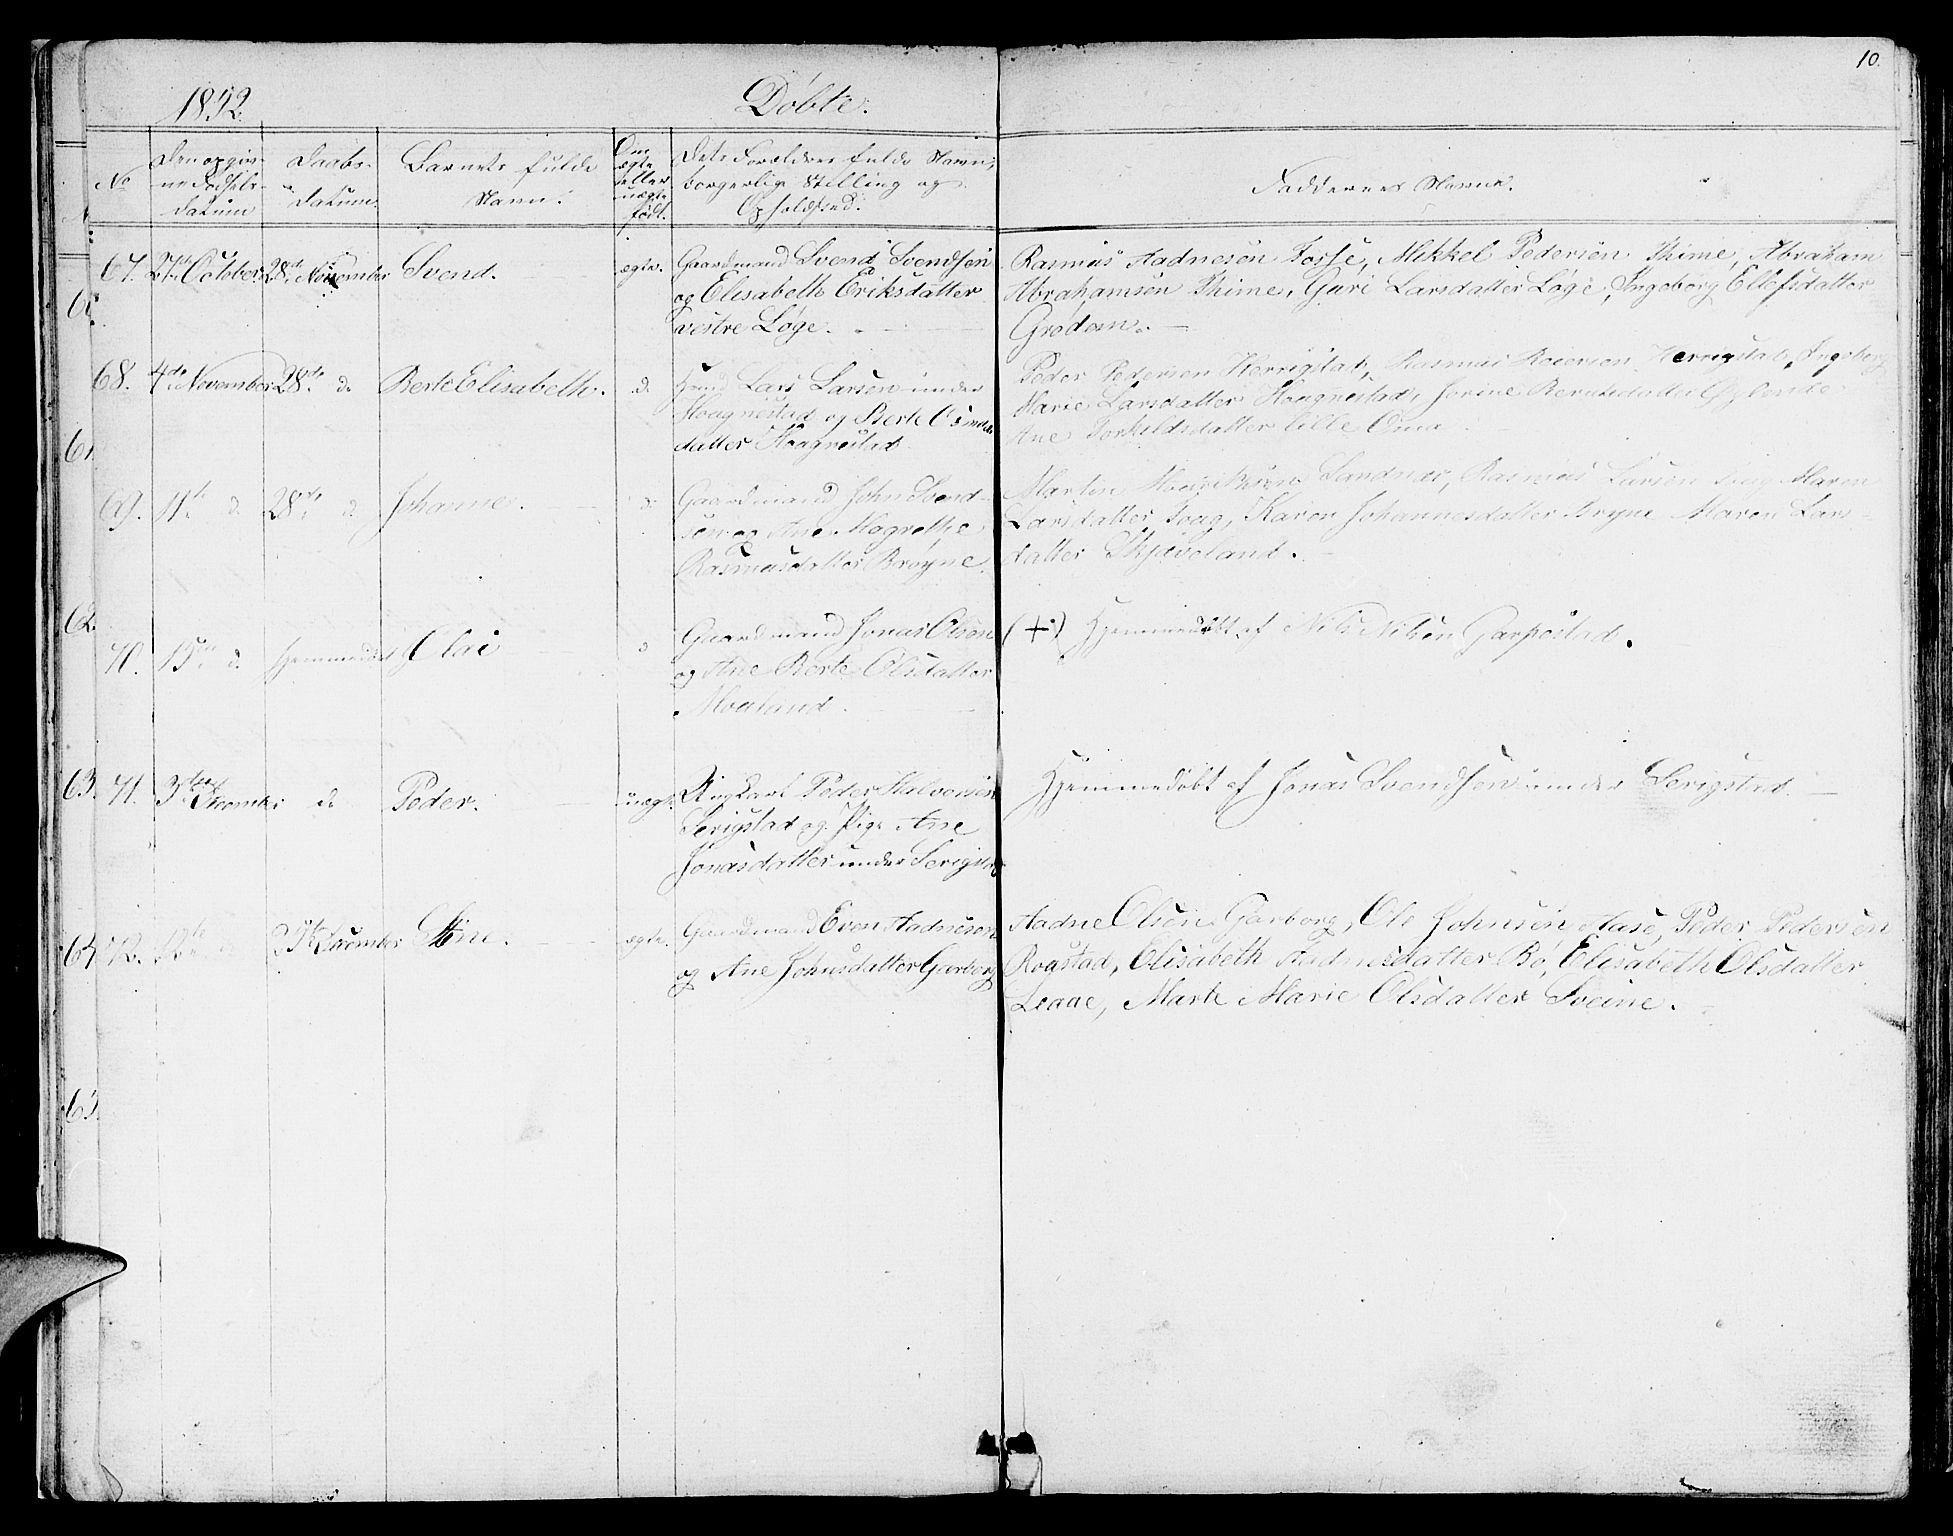 10.
1852
Döbte.
No
Den opgiv-
ne Födsels-
datum
Daabs-
datum.
Barnets fulde
Navn.
Om
ægte
eller
uægte
födt.
Dets Forældres fulde Navn,
borgerlige Stilling og
Opholdsted.
Faddernes Navne.
67. 27de October 28de November Svend. ægte. Gaardmand Svend Svendsen
og Elisabeth Eriksdatter
vestre Løge.
Rasmus Aadnesen Fosse, Mikkel Pedersen Thime, Abraham
Abrahamsen Thime, Guri Larsdatter Løge, Ingeborg Ellefsdatter
Grødem.
68. 4de November 28de d. Berte Elisabeth. d. Huusmd Lars Larsen under
Haagnestad og Berte
datter Haagnestad
Peder Pedersen Herrigstad, Rasmus Herrigstad, Ingeborg
Marie Larsdatter Haagnestad,
Ane Torkildsdatter lille Oma
69. 11te d. 28de d. Johanne. d. Gaardmand John Svend-
sen og Ane Magrethe
Rasmusdatter Brøyne.
Martin Sandnæs, Rasmus Larsen Maren
Larsdatter Karen Johannesdatter Bryne Maren Lars-
datter Skjæveland.
70. 15de d. Hjemmedöbt Elai d. Gaardmand Jonas Olsen
og Ane Berte Olsdatter
Moeland.
(+) Hjemmedöbt af Nils Nilsen Garpestad.
71. 3die December d. Peder. uægte. Ungkarl Peder Halvorsen
Serigstad og Pige Ane
Jonasdatter under Serigstad
Hjemmedöbt af Jonas Svendsen under Serigstad.
72. December Stine. ægte. Gaardmand Even Aadnesen
og Ane Johnsdatter Garborg
Aadne Olsen Garborg, Ole Johnsen Aase, Peder Pedersen
Rogstad, Elisabeth Aadnesdatter Bø, Elisabeth Olsdatter
Laaae, Marte Marie Olsdatter Sveine.
61.
62.
63.
64
65.